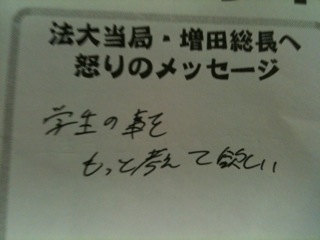 法大当局・増田総長へ
怒りのメッセージ
学生の事を
もっと考えて欲しい